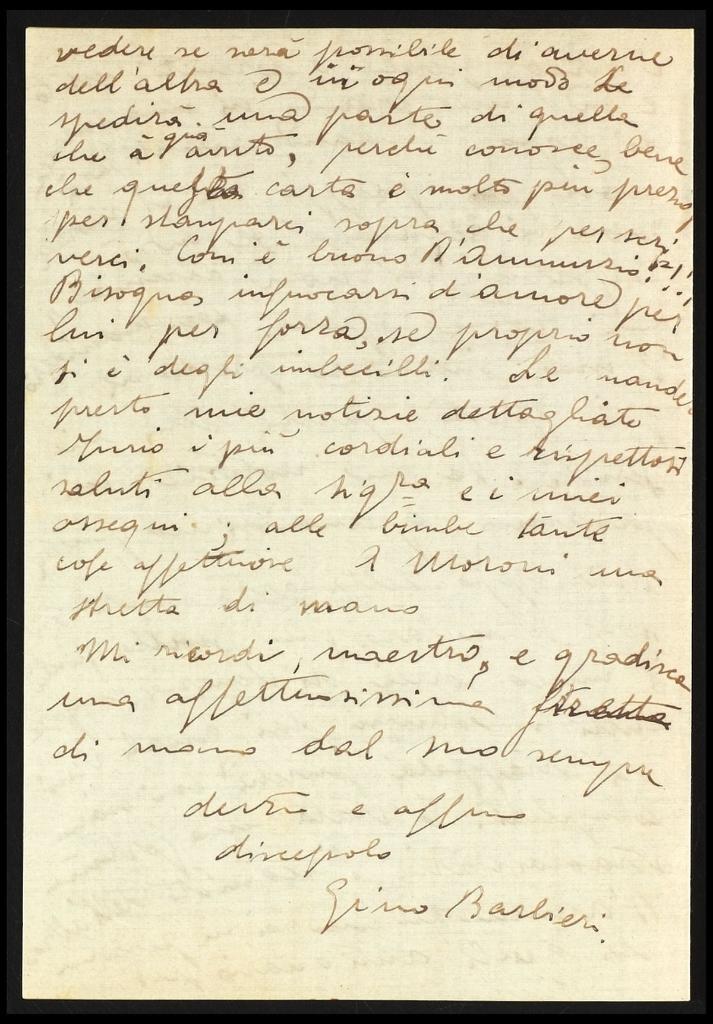 vedere se sarà possibile di averne
dell'altra e in ogni modo Le
spedirà una parte di quella
che à già avuto, perchè conosce bene
che questa carta è molto più
per stamparci sopra che per scri
verci. Com'è buono D'Annunzio!!!
Bisogna infuocarsi d'amore per
lui per forza, se proprio non
si è degli imbecilli. Le
presto mie notizie dettagliate
i più cordiali e rispettosi
saluti alla sigra e i miei
ossequi; alle bimbe tante
cose affettuose A Moroni una
stretta di mano
Mi ricordi, maestro, e gradisca
una affettuosissima stretta
di mano dal suo sempre
devto e affmo
discepolo
Gino Barbieri.